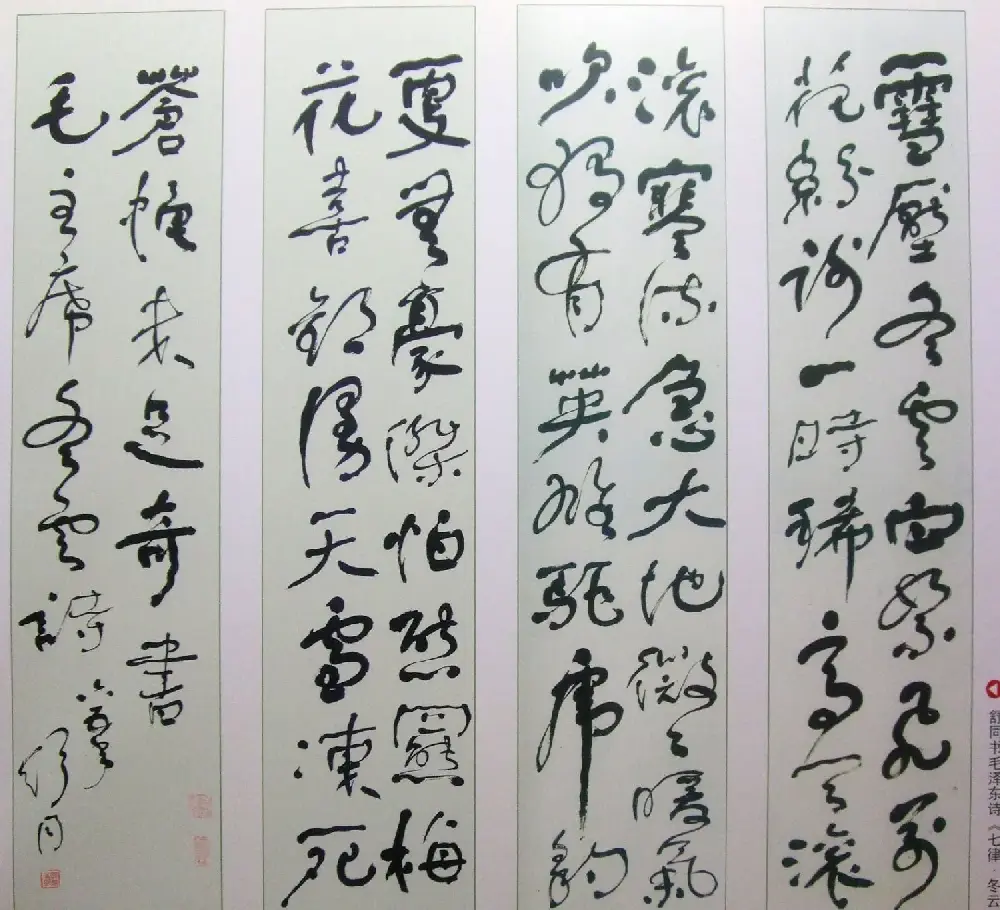 雪壓冬雲白絮飛萬
花紛謝一時稀高天滾
滾寒流急大地微々暖氣
吹獨有英雄驅虎豹
更無豪傑怕熊羆梅
花喜歡漫天雪凍死
蒼蠅未足奇 書
毛主席冬雲詩
舒同
舒同书毛泽东诗《七律·冬云